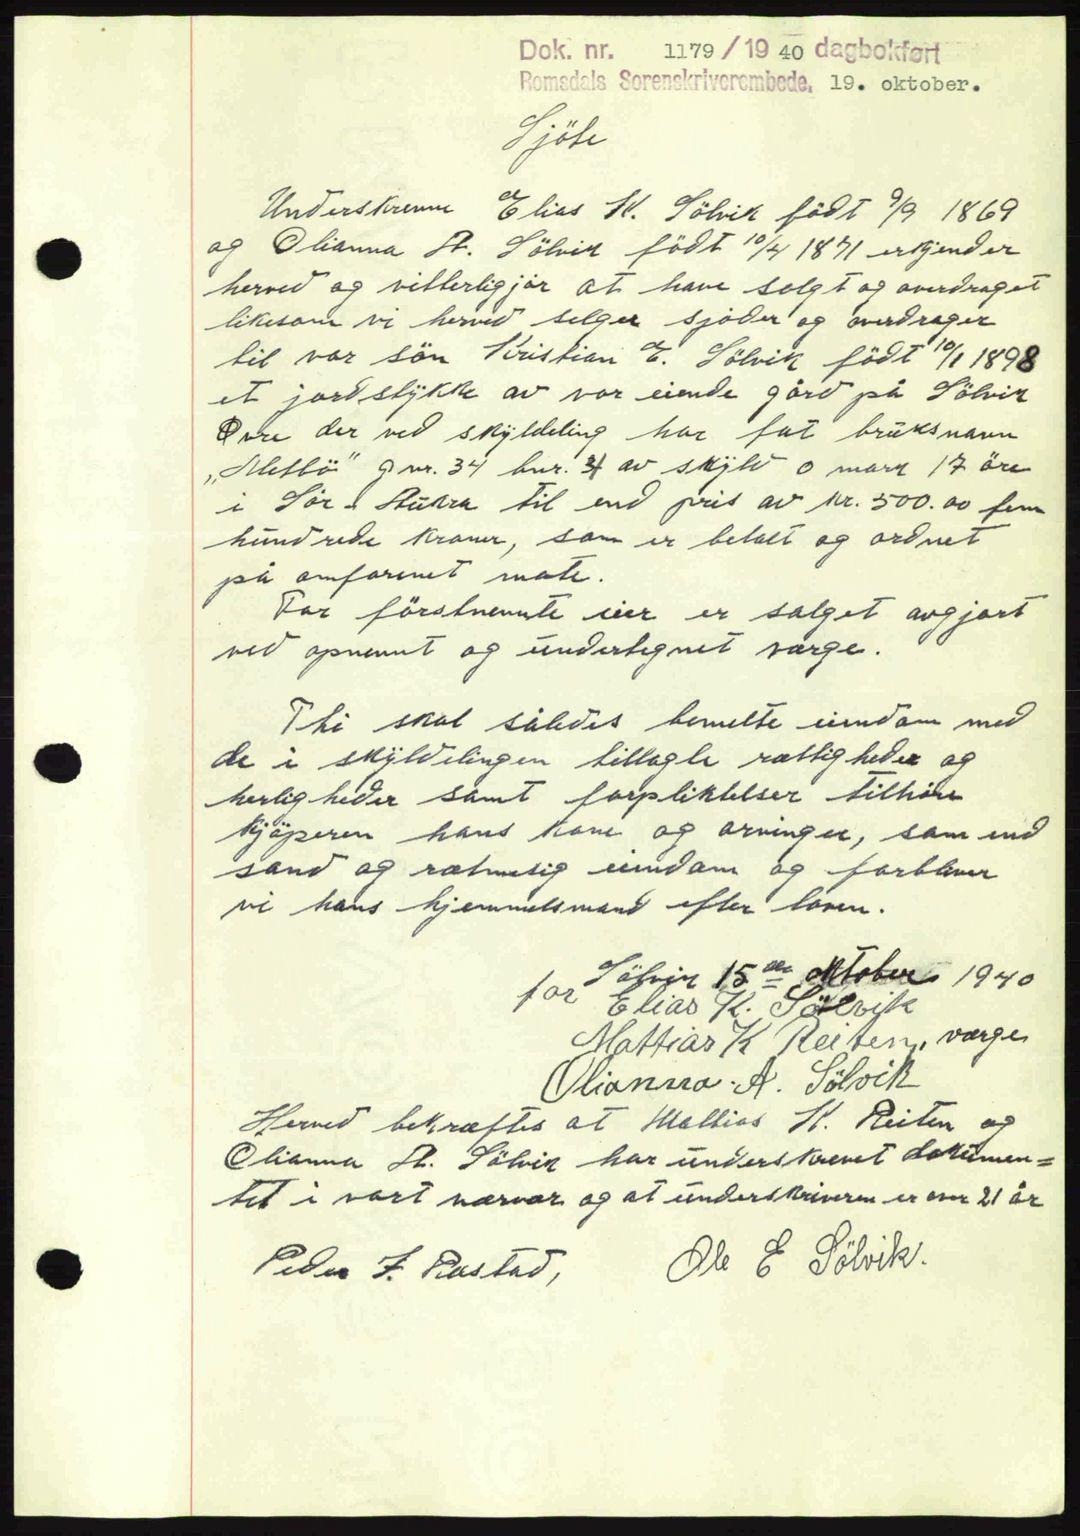 Dok. nr. 1179 / 19 40 dagbokført
Romsdals Sorenskriverembede, 19. oktober.
Sjöte
Underskrevne Elias K. Sölvik födt 9/9 1869
og Olianna A. Sölvik födt 10/4 1871 erkjender
herved og vitterligjör at have solgt og overdraget
likesom vi herved selger sjöder og overdrager
til vor sön Kristian E. Sölvik födt 10/1 1898
et jordstykke av vor eiende gård på Sölvik
Övre der ved skylddeling har fåt bruksnavn
„Metbö" g nr. 34 bnr. 31 av skyld 0 mark 17 öre
i Sör-Aukra til end pris av kr. 500.00 fem
hundrede kroner, som er betalt og ordnet
på omforenet måte.
For förstnevnte eier er salget avgjort
ved opnevnt og undertegnet værge.
Thi skal således bemelte eiendom med
de i skylddelingen tillagte rettigheder og
herligheder samt forpliktelser tilhöre
kjöperen hans kone og arvinger, som end
sand og retmesig eiendom og forbliver
vi hans hjemmelsmænd efter loven.
Sölvik 15de oktober 1940
for Elias K. Sölvik
Mattias K Reiten, værge
Olianna A. Sölvik
Herved bekræftes at Mattias K. Reiten og
Olianna A. Sölvik har underskrevet dokumen=
tet i vort nærvær og at underskriveren er over 21 år
Peder J. Rostad,
Ole E Sölvik.